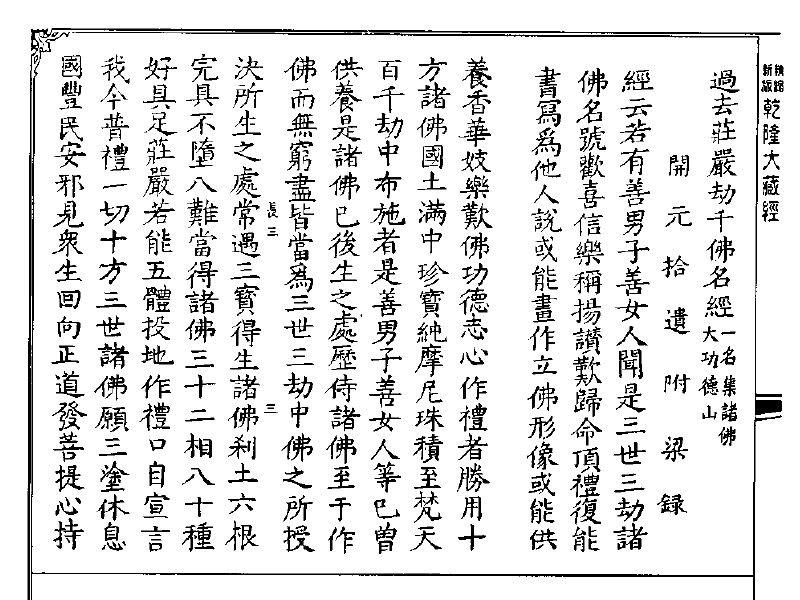 新編縮版
乾隆大藏經
過去莊嚴劫千佛名經一名集諸佛大功德山
開元拾遺附梁録
經云若有善男子善女人聞是三世三劫諸
佛名號歡喜信樂稱揚讚歎歸命頂禮復能
書寫爲他人說或能畫作立佛形像或能供
養香華妓樂歎佛功德志心作禮者勝用十
方諸佛國土滿中珍寶純摩尼珠積至梵天
百千劫中布施者是善男子善女人等已曾
供養是諸佛已後生之處歷侍諸佛至于作
佛而無窮盡皆當爲三世三劫中佛之所授
長三
三
決所生之處常遇三寶得生諸佛刹土六根
完具不墮八難當得諸佛三十二相八十種
好具足莊嚴若能五體投地作禮口自宣言
我今普禮一切十方三世諸佛願三塗休息
國豐民安邪見衆生回向正道發菩提心持